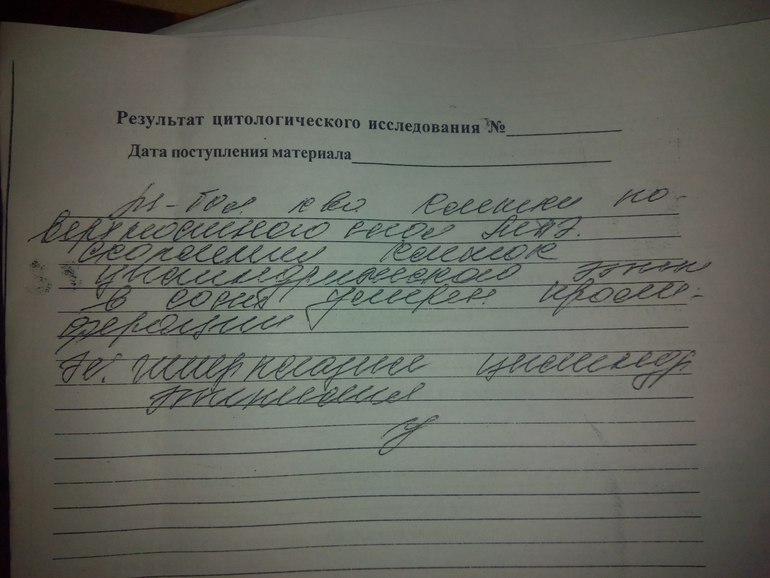 Результат цитологического исследования №
Дата поступления материала
бол. к-во клетки по-
верхностного слоя МПЭ.
скопления клеток
цилиндрического эпит
в сост умерен проли-
ферации
гиперплазия цилиндр
эпителия